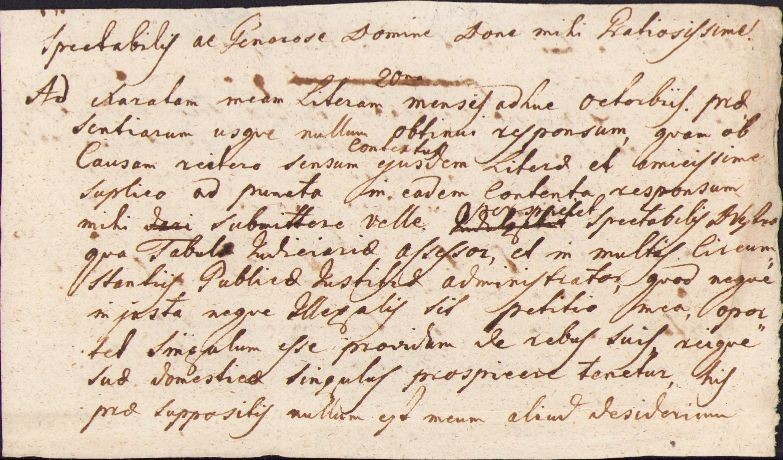 Spectabilis ac Generose Domine Done mihi Gratiosissime
20ma
Ad exaratam meam Literam mensis adhuc Octobris præ
sentiarum usqve nullum obtinui responsum, quam ob
Causam reitero sensum
contentum
ejusdem Literæ et amicissime
suplico ad puncta in eadem Contenta responsum
mihi submittere velle. Spectabilis
qua Tabulæ Judiciariæ assessor, et in multis Circum„
stantiis Publicæ Justitiæ administrator, quod neqve
injusta neque Illegalis sit petitio mea, opor„
tet singulum esse providum de rebus suis, reiqve„
suæ domesticæ singulus prospicere tenetur, his
præ suppositis nullum est meum aliud desiderium